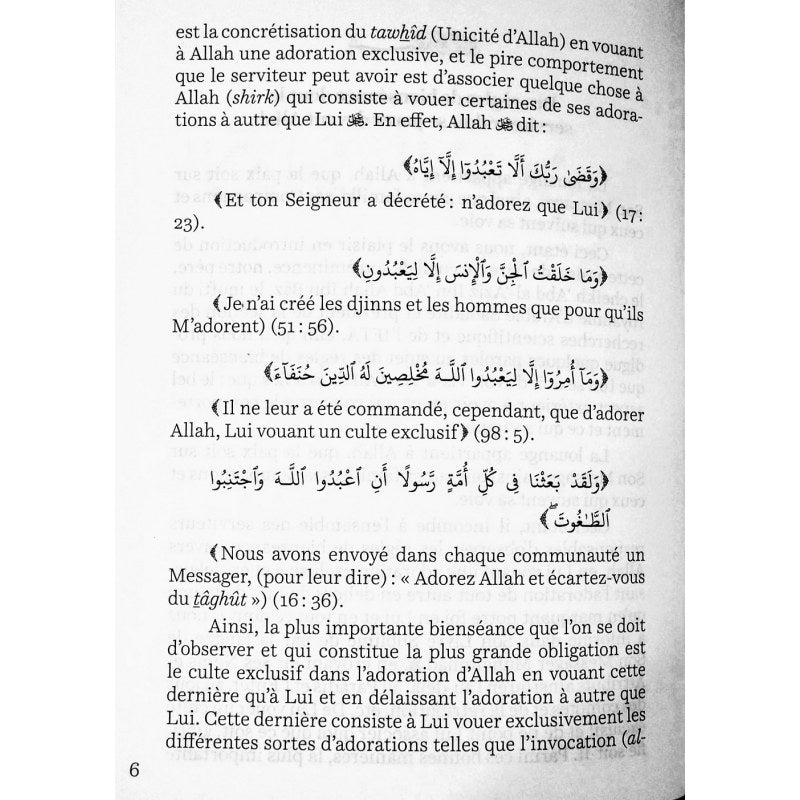 est la concrétisation du tawhîd (Unicité d'Allah) en vouant
à Allah une adoration exclusive, et le pire comportement
que le serviteur peut avoir est d'associer quelque chose à
Allah (shirk) qui consiste à vouer certaines de ses adora-
tions à autre que Lui ﷻ. En effet, Allah ﷻ dit :
﴿وَقَضَىٰ رَبُّكَ أَلَّا تَعْبُدُوٓا۟ إِلَّآ إِيَّاهُ﴾
﴾Et ton Seigneur a décrété : n'adorez que Lui﴿ (17 :
23).
﴿وَمَا خَلَقْتُ ٱلْجِنَّ وَٱلْإِنسَ إِلَّا لِيَعْبُدُونِ﴾
﴾Je n'ai créé les djinns et les hommes que pour qu'ils
M'adorent) (51 : 56).
﴿وَمَآ أُمِرُوٓا۟ إِلَّا لِيَعْبُدُوا۟ ٱللَّـهَ مُخْلِصِينَ لَهُ ٱلدِّينَ حُنَفَآءَ﴾
﴾Il ne leur a été commandé, cependant, que d'adorer
Allah, Lui vouant un culte exclusif﴿ (98 : 5).
﴿وَلَقَدْ بَعَثْنَا فِى كُلِّ أُمَّةٍ رَّسُولًا أَنِ ٱعْبُدُوا۟ ٱللَّـهَ وَٱجْتَنِبُوا۟
ٱلطَّـٰغُوتَ ۖ﴾
﴾Nous avons envoyé dans chaque communauté un
Messager, (pour leur dire) : « Adorez Allah et écartez-vous
du ṯâghût ») (16 : 36).
Ainsi, la plus importante bienséance que l'on se doit
d'observer et qui constitue la plus grande obligation est
le culte exclusif dans l'adoration d'Allah en vouant cette
dernière qu'à Lui et en délaissant l'adoration à autre que
Lui. Cette dernière consiste à Lui vouer exclusivement les
différentes sortes d'adorations telles que l'invocation (al-
6